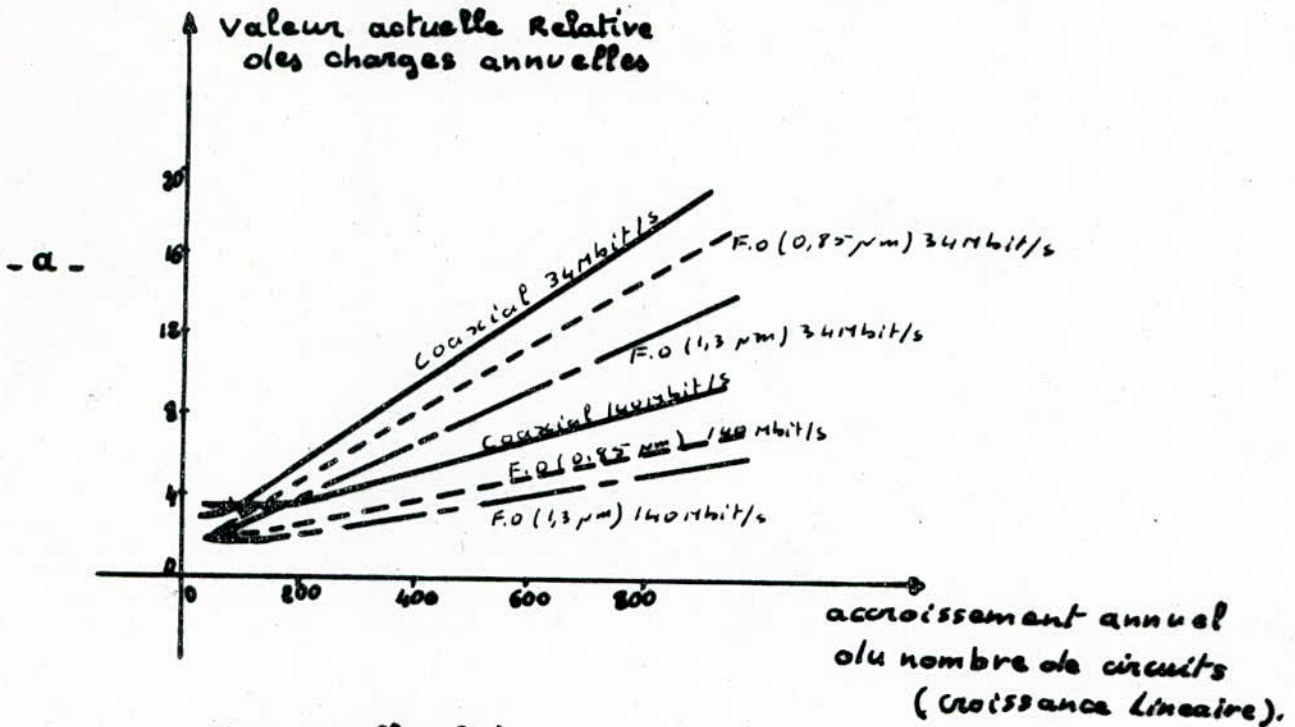 Valeur actuelle Relative
des charges annuelles
- a -
20
16
12
8
4
0
coaxial 34Mbit/s
F.O (0,85 µm) 34Mbit/s
F.O (1,3 µm) 34Mbit/s
coaxial 140Mbit/s
F.O (0,85 µm) 140 Mbit/s
F.O (1,3 µm) 140Mbit/s
0 200 400 600 800
accroissement annuel
du nombre de circuits
(croissance Lineaire).